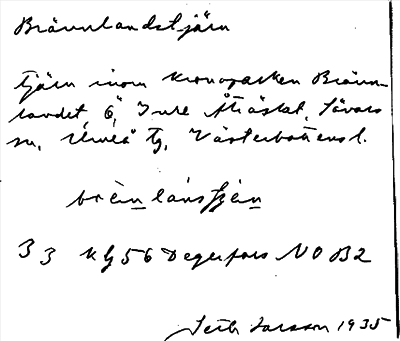 Brännlandstjärn
Tjärn inom kronoparken Bränn-
landet, 6, Inre Åträsket, Sävars
sn, Umeå tg, Västerbottens l.
brän lans
33 kg 56 Degerfors NO B2
Seth Larsson 1935